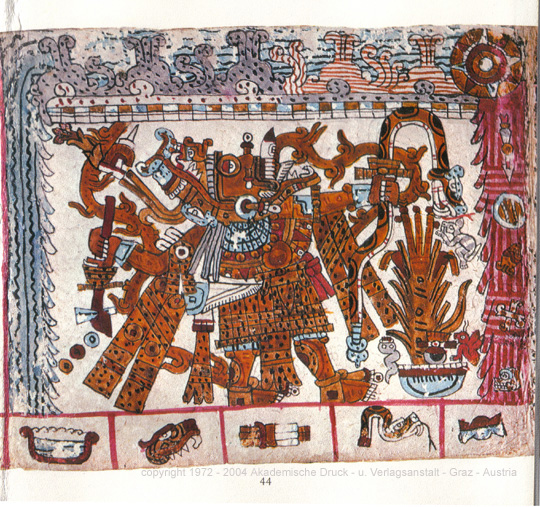 copyright 1972 - 2004 Akademische Druck - u. Verlagsanstalt - Graz - Austria
44